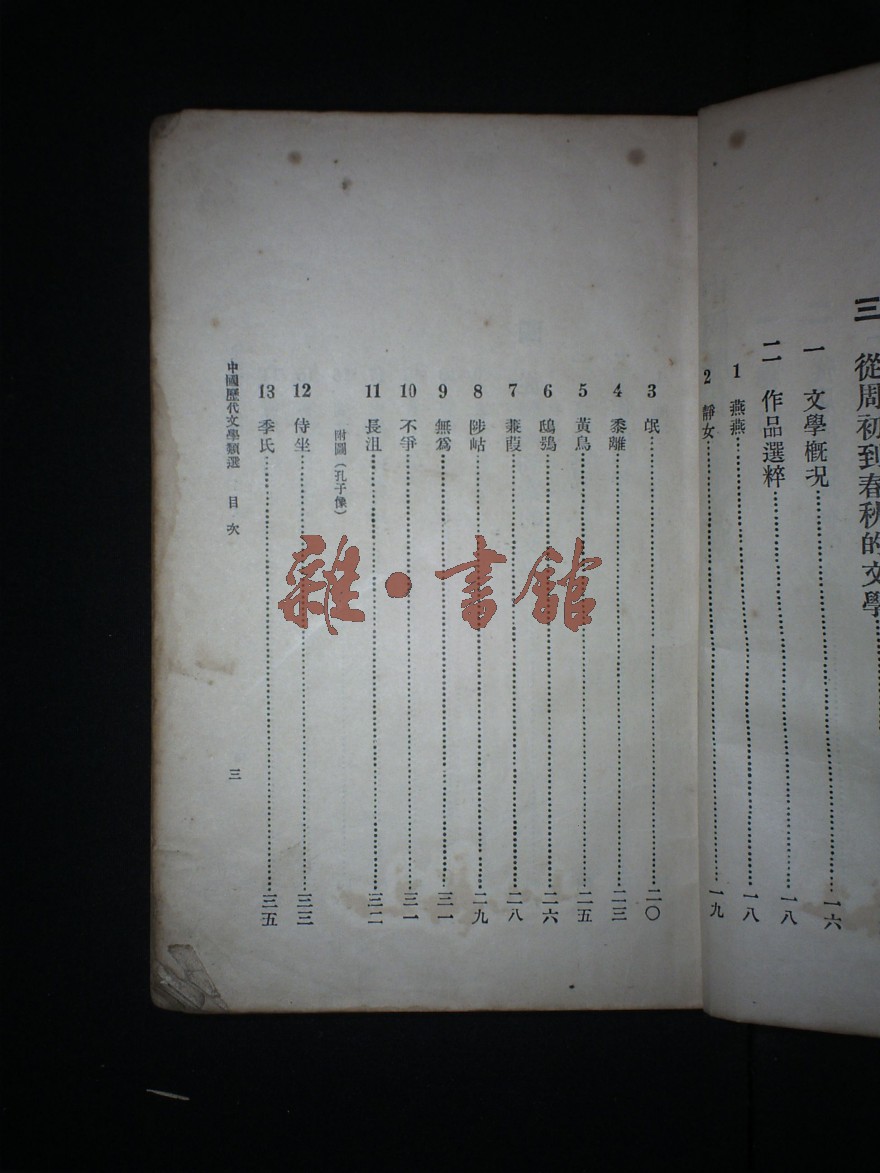 三 從周初到春秋的文學
一 文學概況……一六
二 作品選粹……一八
1 燕燕……一八
2 靜女……一九
3 氓……二〇
4 黍離……二三
5 黃鳥……二五
6 鴟鴞……二六
7 蒹葭……二八
8 陟岵……二九
9 無爲……三一
10 不爭……三一
11 長沮……三二
附圖(孔子像)
12 侍坐……三三
13 季氏……三五
中國歷代文學類選 目次 三
雜·書館